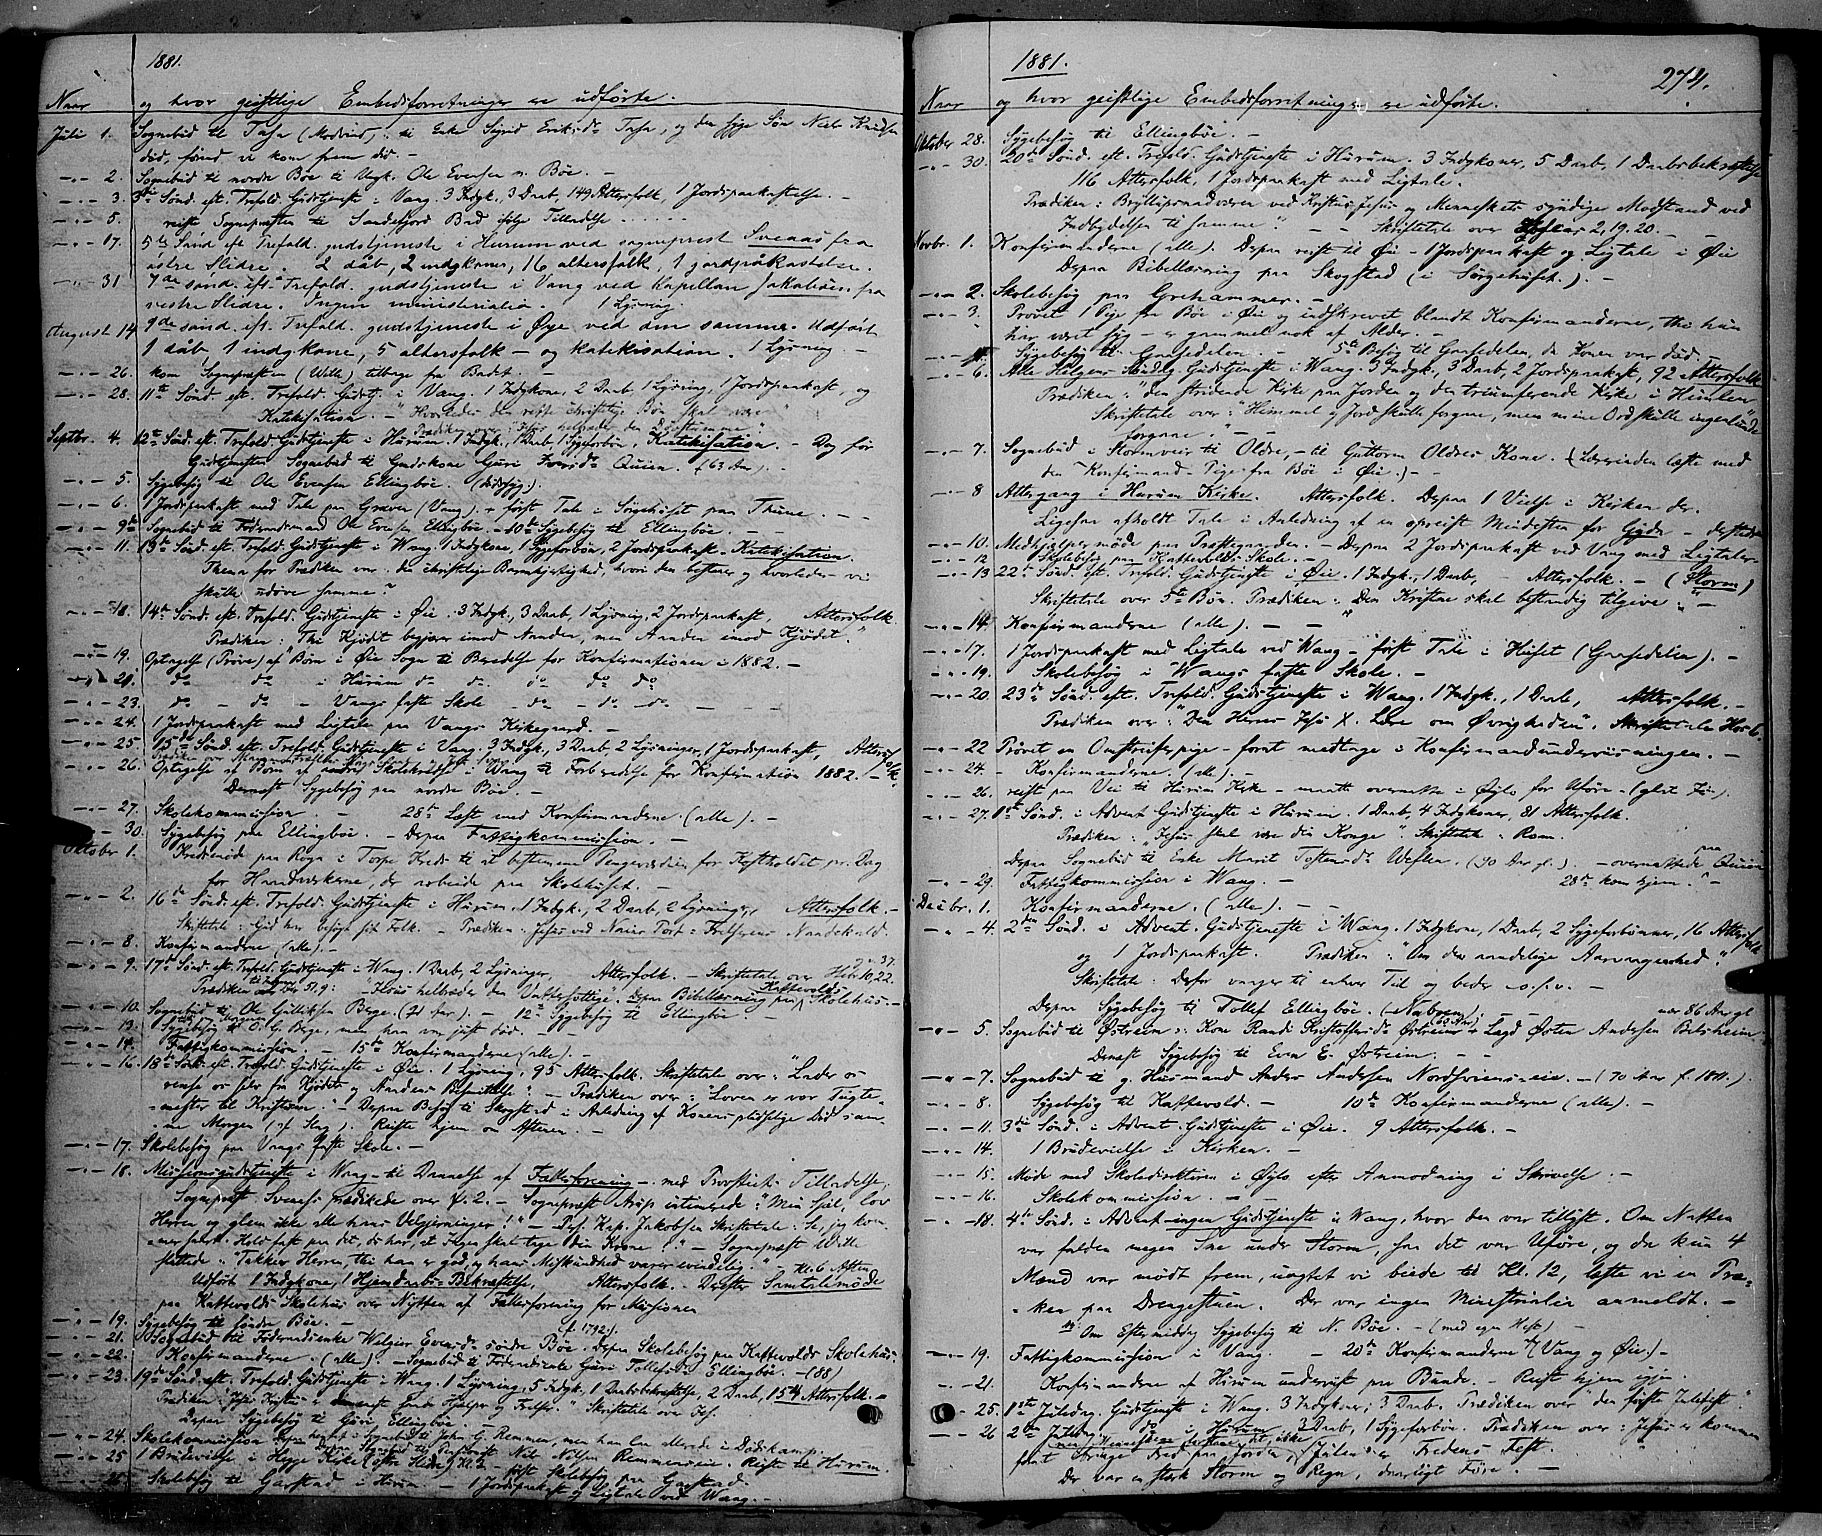 1881.
Naar og hvor geistlige Embedsforretninger ere udførte.
Juli 1. Sognebud til Tafa (Modvid) : til Enke Sigrid Eriksdr Tafa, og den syge Søn Niels Knudsen
død, førend vi kom frem did. -
2. Sognebud til nordre Bøe til Ungk. Ole Evensen n. Bøe. -
3. 3die Sönd. eft. Trefold. Gudstjeneste i Vang. 3 Indgk., 3 Daab, 149 Altersfolk, 1 Jordspaakastelse. -
5. reiste Sognepræsten til Sandefjord Bad ifølge Tilladelse
17. 5te Sönd eft Trefold. gudstjeneste i Hurum ved sogneprest Svenas fra
østre Slidre. 2 dåb, 2 indgkoner, 16 altersfolk, 1 jordpåkastelse.
31 7de sönd. eft. Trefold. gudstjeneste i Vang ved Kapellan Jakobsen fra
vestre Slidre. Ingen ministerialia. 1 Lysning.
August 14 9de sönd. eft. Trefold. gudstjeneste i Øye ved den samme. Udført
1 dåb, 1 indgkone, 5 altersfolk - og katekisation. 1 Lysning -
26. kom Sognepræsten (Wille) tilbage fra Badet. -
28. 11te Sönd. eft. Trefold. Gudstj. i Vang. 1 Indgkone, 2 Daab, 1 Lysning, 1 Jordspaakast, og
Katekisation. - "Hvorledes den rette christelige Bøn skal være"
Prædiken over "Jesus helbreder den Døvstumme"
Septbr. 4. 12te Sönd. eft. Trefold. Gudstjeneste i Hurum. 1 Indgk, 1 Daab, 1 Sygeforbøn, Katekisation. - Dag før
Gudstjenesten Sognebud til Gaardkone Guri Iversdr Quien. (63 Aar).
5. Sygebesøg til Ole Evensen Ellingbøe. (dødssyg).
6. 1 Jordspaakast med Tale paa Graven (Vang), + først Tale i Sørgehuset paa Thune. -
9de Sognebud til Föderaadsmand Ole Evensen Ellingbøe. - 10de Sygebesøg til Ellingbøe. -
11. 13de Sönd. eft. Trefold. Gudstjeneste i Wang. 1 Indgkone, 1 Sygeforbøn, 2 Jordspaakast - Katekisation.
Thema for Prædiken var: den christelige Barmhjertighed, hvori den bestaaer og hvorledes vi
skulle udøve samme?
18. 14de Sönd. eft. Trefold. Gudstjeneste i Øie. 3 Indgk., 3 Daab, 1 Lysning, 2 Jordspaakast, Altersfolk.
Prædiken: Thi Kjødet begjærer imod Aanden, men Aanden imod Kjødet."
19. Optagelse (Prøve) af Børn i Øie Sogn til Beredelse for Konfirmationen i 1882. -
21. do do i Hurum do do do do do
23. do do - Vangs faste Skole - do - do do
24. 1 Jordspaakast med Ligtale paa Vangs Kirkegaard. -
25 15de Sönd. eft. Trefold. Gudstjeneste i Vang. 3 Indgk, 3 Daab, 2 Lysninger, 1 Jordspaakast, Altersfolk.
26. Optagelse af Børn af Skolekredse i Wang til Forberedelse for Konfirmation 1882. -
Dernæst Sygebesøg paa nordre Bøe. -
27. Skolekommission - 28de Læst med Konfirmanderne. (alle). -
30. Sygebesøg paa Ellingbøe. - Depaa Fattigkommission. -
Oktober 1. Kredsmøde paa Rogn i Torpe Kreds til at bestemme Pengeværdien for Kostholdet pr. Dag
for Haandværkerne, der arbeide paa Skolehuset. -
2. 16de Sönd. eft. Trefold. Gudstjeneste i Hurum. 1 Indgk., 2 Daab, 2 Lysninger, Altersfolk. -
Skriftetale: Gud har besøgt sit Folk. - Prædiken: Jesus ved Nains Port: Frelserens Naadekald.
8. Konfirmanderne (alle). -
9. 17de Sönd. eft. Trefold. Gudstjeneste i Wang. 1 Daab, 2 Lysninger, Altersfolk. - Skriftetale over Hebr. 10,22.
Prædiken : - "Jesus helbreder den Vattersottige". depaa Bibellæsning paa Kattevolds Skolehus. -
10. Sognebud til Ole Gulliksen Berge. (21 Aar). - 12te Sygebesøg til Ellingbøe -
13. Sygebesøg til O. G. Berge, men han var just död. -
14. Fattigkommission. - 15de Konfirmanderne (alle). -
16. 18de Sönd. eft. Trefold. Gudstjeneste i Øie. 1 Lysning, 95 Altersfolk. Skriftetale over: "Lader os
rense os selv fra Kjødets og Aandens Besmittelse" - Prædiken over: "Loven er vor Tugte-
mester til Kristum." - Depaa Besøg til Skogstad i Anledning af Konens pludselige Død sam-
me Morgen (af Slag). Reiste hjem om Aftenen. -
17. Skolebesøg paa Vangs faste Skole. -
18. Missionsgudstjeneste i Wang - til Dannelse af Fællesforening - med Provstiets Tilladelse.
Sognepræst Svenas prædikede over - Sognepræst Arup intimerede: "Min Sjel, lov
Herren og glem ikke alle hans Velgjerninger!" - Pers. Kap. Jakobsen Skriftetale: Se, jeg kom-
mer snart. Hold fast paa det, du har, at Ingen skal tage din Krone!" - Sognepræst Wille
sluttede: "Takker Herren, thi han er god, og hans Miskundhed varer evindelig." - Kl. 6 Aften
Udført 1 Indgkone, 1 Hjemdaabs-Bekræftelse, Altersfolk. - Derefter Samtalemøde
paa Kattevolds Skolehus over Nytten af Fællesforening for Missionen
19. Sygebesøg til søndre Bøe. - (f. 1792).
21. Sognebud til Föderaadsenke Evensdr søndre Bøe. Depaa Skolebesøg paa Kattevolds Skolehus.
22. Konfirmanderne. (alle) - Sognebud til Föderaadsenke Guri Tollefsdr Ellingbøe. - (88)
23. 19de Sönd. eft. Trefold. Gudstjeneste i Wang. 1 Lysning, 5 Indgk, 1 Daabsbekræftelse, 2 Daab, 154 Altersfolk. -
Prædiken: "Jesus Kristus er Hjelper og Frelser." Skriftetale over Jes.
Depaa Sygebesøg til Guri Ellingbøe. -
24. Skolekommission Sognebud til John G. Remmen, men han laa allerede i Dødskamp.
25 1 Brudevielse i Hegge Kirke (østre Slidre) Kl. 2 Nils Nilsen Remmeneie. Reiste til Hurum.
26. Skolebesøg til Garstad i Hurum. - 1 Jordspaakast og Ligtale ved Wang. -
1881. 274.
Naar og hvor geistlige Embedsforretninger ere udførte.
Oktober 28. Sygebesøg til Ellingbøe. -
30. 20de Sönd. eft. Trefold. Gudstjeneste i Hurum. 3 Indgkoner, 5 Daab, 1 Daabsbekræftelse
116 Altersfolk, 1 Jordspaakast med Ligtale.
Prædiken: Bryllupsnaadværen ved Kristus Jesus og Menneskets syndige Modstand ved
Indbydelsen til samme". - - Skriftetale over Hoseas 2, 19. 20. -
Novbr. 1. Konfirmanderne (alle). Depaa reist til Øie - 1 Jordspaakast og Ligtale i Øie
Depaa Bibellæsning paa Skogstad (i Sørgehuset.). -
2. Skolebesøg paa Grehammer. -
3. Prøvet 1 Pige fra Bøe i Øie og indskrevet blandt Konfirmanderne, thi hun
har været syg - er gammel nok af Alder. -
4. Sygebesøg til Grafedelen - 5te Besøg til Grafedelen, da Konen var død.
6. Alle Helgens Söndg. Gudstjeneste i Wang. 3 Indgk., 3 Daab, 2 Jordspaakast, 92 Altersfolk
Prædiken: "den stridende Kirke paa Jorden og den triumferende Kirke i Himlen
Skriftetale over: "Himmel og Jord skulle forgaae, men mine Ord skulle ingenlunde
forgaae". -
7. Sognebud i Stormveir til Oldre, - til Guttorm Oldres Kone. (Lærerinden læste med
den Konfirmand-Pige fra Bøe i Øie.) -
8 Altergang i Hurum Kirke. Altersfolk. Depaa 1 Vielse i Kirken der.
Ligesaa afholdt Tale i Anledning af en opreist Mindesten for Gyda - dersteds
10. Medhjælpermøde paa Præstegaarden. - Depaa 2 Jordspaakast ved Vang med Ligtaler. -
12 Skolebesøg paa Kattevolds Skole. -
13 22de Sönd. eft. Trefold. Gudstjeneste i Øie. 1 Indgk., 1 Daab, - Altersfolk. - (Storm)
Skriftetale over 5te Bøn. Prædiken: "Den Kristne skal bestandig tilgive". -
14. Konfirmanderne (alle). - -
17. 1 Jordspaakast med Ligtale ved Wang - først Tale i Huset (Grafedelen). -
19. Skolebesøg i Wangs faste Skole. -
20. 23de Sönd. eft. Trefold. Gudstjeneste i Wang. 1 Indgk., 1 Daab, Altersfolk. -
Prædiken over: "Den Herres Jesu X. Lære om Øvrigheden". Skriftetale Hos. 6.
22 Prøvet en Omstreiferpige - foràt medtage i Konfirmandundervisningen. -
24. - Konfirmanderne. (alle). -
26. reist paa Vei til Hurum Kirke - maatte overnatte i Øylo for Uføre - (glat Is).
27. 1ste Sönd. i Advent Gudstjeneste i Hurum. 1 Daab, 4 Indgkoner, 81 Altersfolk.
Prædiken: "Jesus skal være din Konge" Skriftetale: Rom.
depaa Sognebud til Enke Marit Tostensdr Weflen. (90 Aar gl.) - overnattede paa Quien
29. Fattigkommission i Wang. - 28de kom hjem. -
Decbr. 1. Konfirmanderne. (alle). -
4. 2den Sönd. i Advent. Gudstjeneste i Wang. 1 Indgkone, 1 Daab, 2 Sygeforbønner, 16 Altersfolk
og 1 Jordspaakast. Prædiken: "Om den aandelige Aarvaagenhed".
Skriftetale: Derfor vaager til enhver Tid og beder o.s.v. -
Depaa Sygebesøg til Tollef Ellingbøe. (Naboen) -
5. Sognebud til Østreim: Kone Randi Kristoffersdr Østreim (65 Aar) og Lægd Østen Andersen Belsheim. near 86 Aar gl.
Dernæst Sygebesøg til Even E. Østreim. - -
7. Sognebud til g. Husmand Anders Andersen Nordsveens-eie. - (70 Aar f. 1811.)
8. Sygebesøg til Kattevold. - 10de Konfirmanderne (alle). -
11. 3die Sönd. i Advent. Gudstjeneste i Øie. 9 Altersfolk. -
14. 1 Brudevielse i Kirken. -
15. Møde med Skoledirektøren i Øylo efter Anmodning i Skrivelse. -
16. Skolekommission. -
18. 4de Sönd. i Advent - ingen Gudstjeneste i Wang, hvor den var tillyst. Om Natten
var falden megen Sne under Storm, saa det var Uføre, og da kun 4
Mænd var mødt frem, uagtet vi biede til Kl. 12, læste vi en Præ-
ken paa Drengestuen. Der var ingen Ministerialia anmeldt. -
Om Eftermiddag Sygebesøg til N. Bøe. - (med egen Hest) -
19. Fattigkommission i Vang. - 20de Konfirmanderne af (Vang og Øie). -
21. Konfirmanderne af Hurum undervist paa Bunde. - Reist hjem igjen.
25. 1ste Juledag. Gudstjeneste i Wang. 3 Indgkoner, 3 Daab. Prædiken over "den første Julefest".
26 2den Juledag do i Hurum 3 Daab, 1 Sygeforbøn. Prædiken over: Jesus er kommen
for at bringe Fred paa Jorden, Julen er Fredens Fest.
Der var en stærk Storm og Regn, daarligt Føre. -